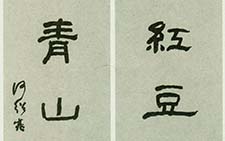 紅豆
青山
何紹基